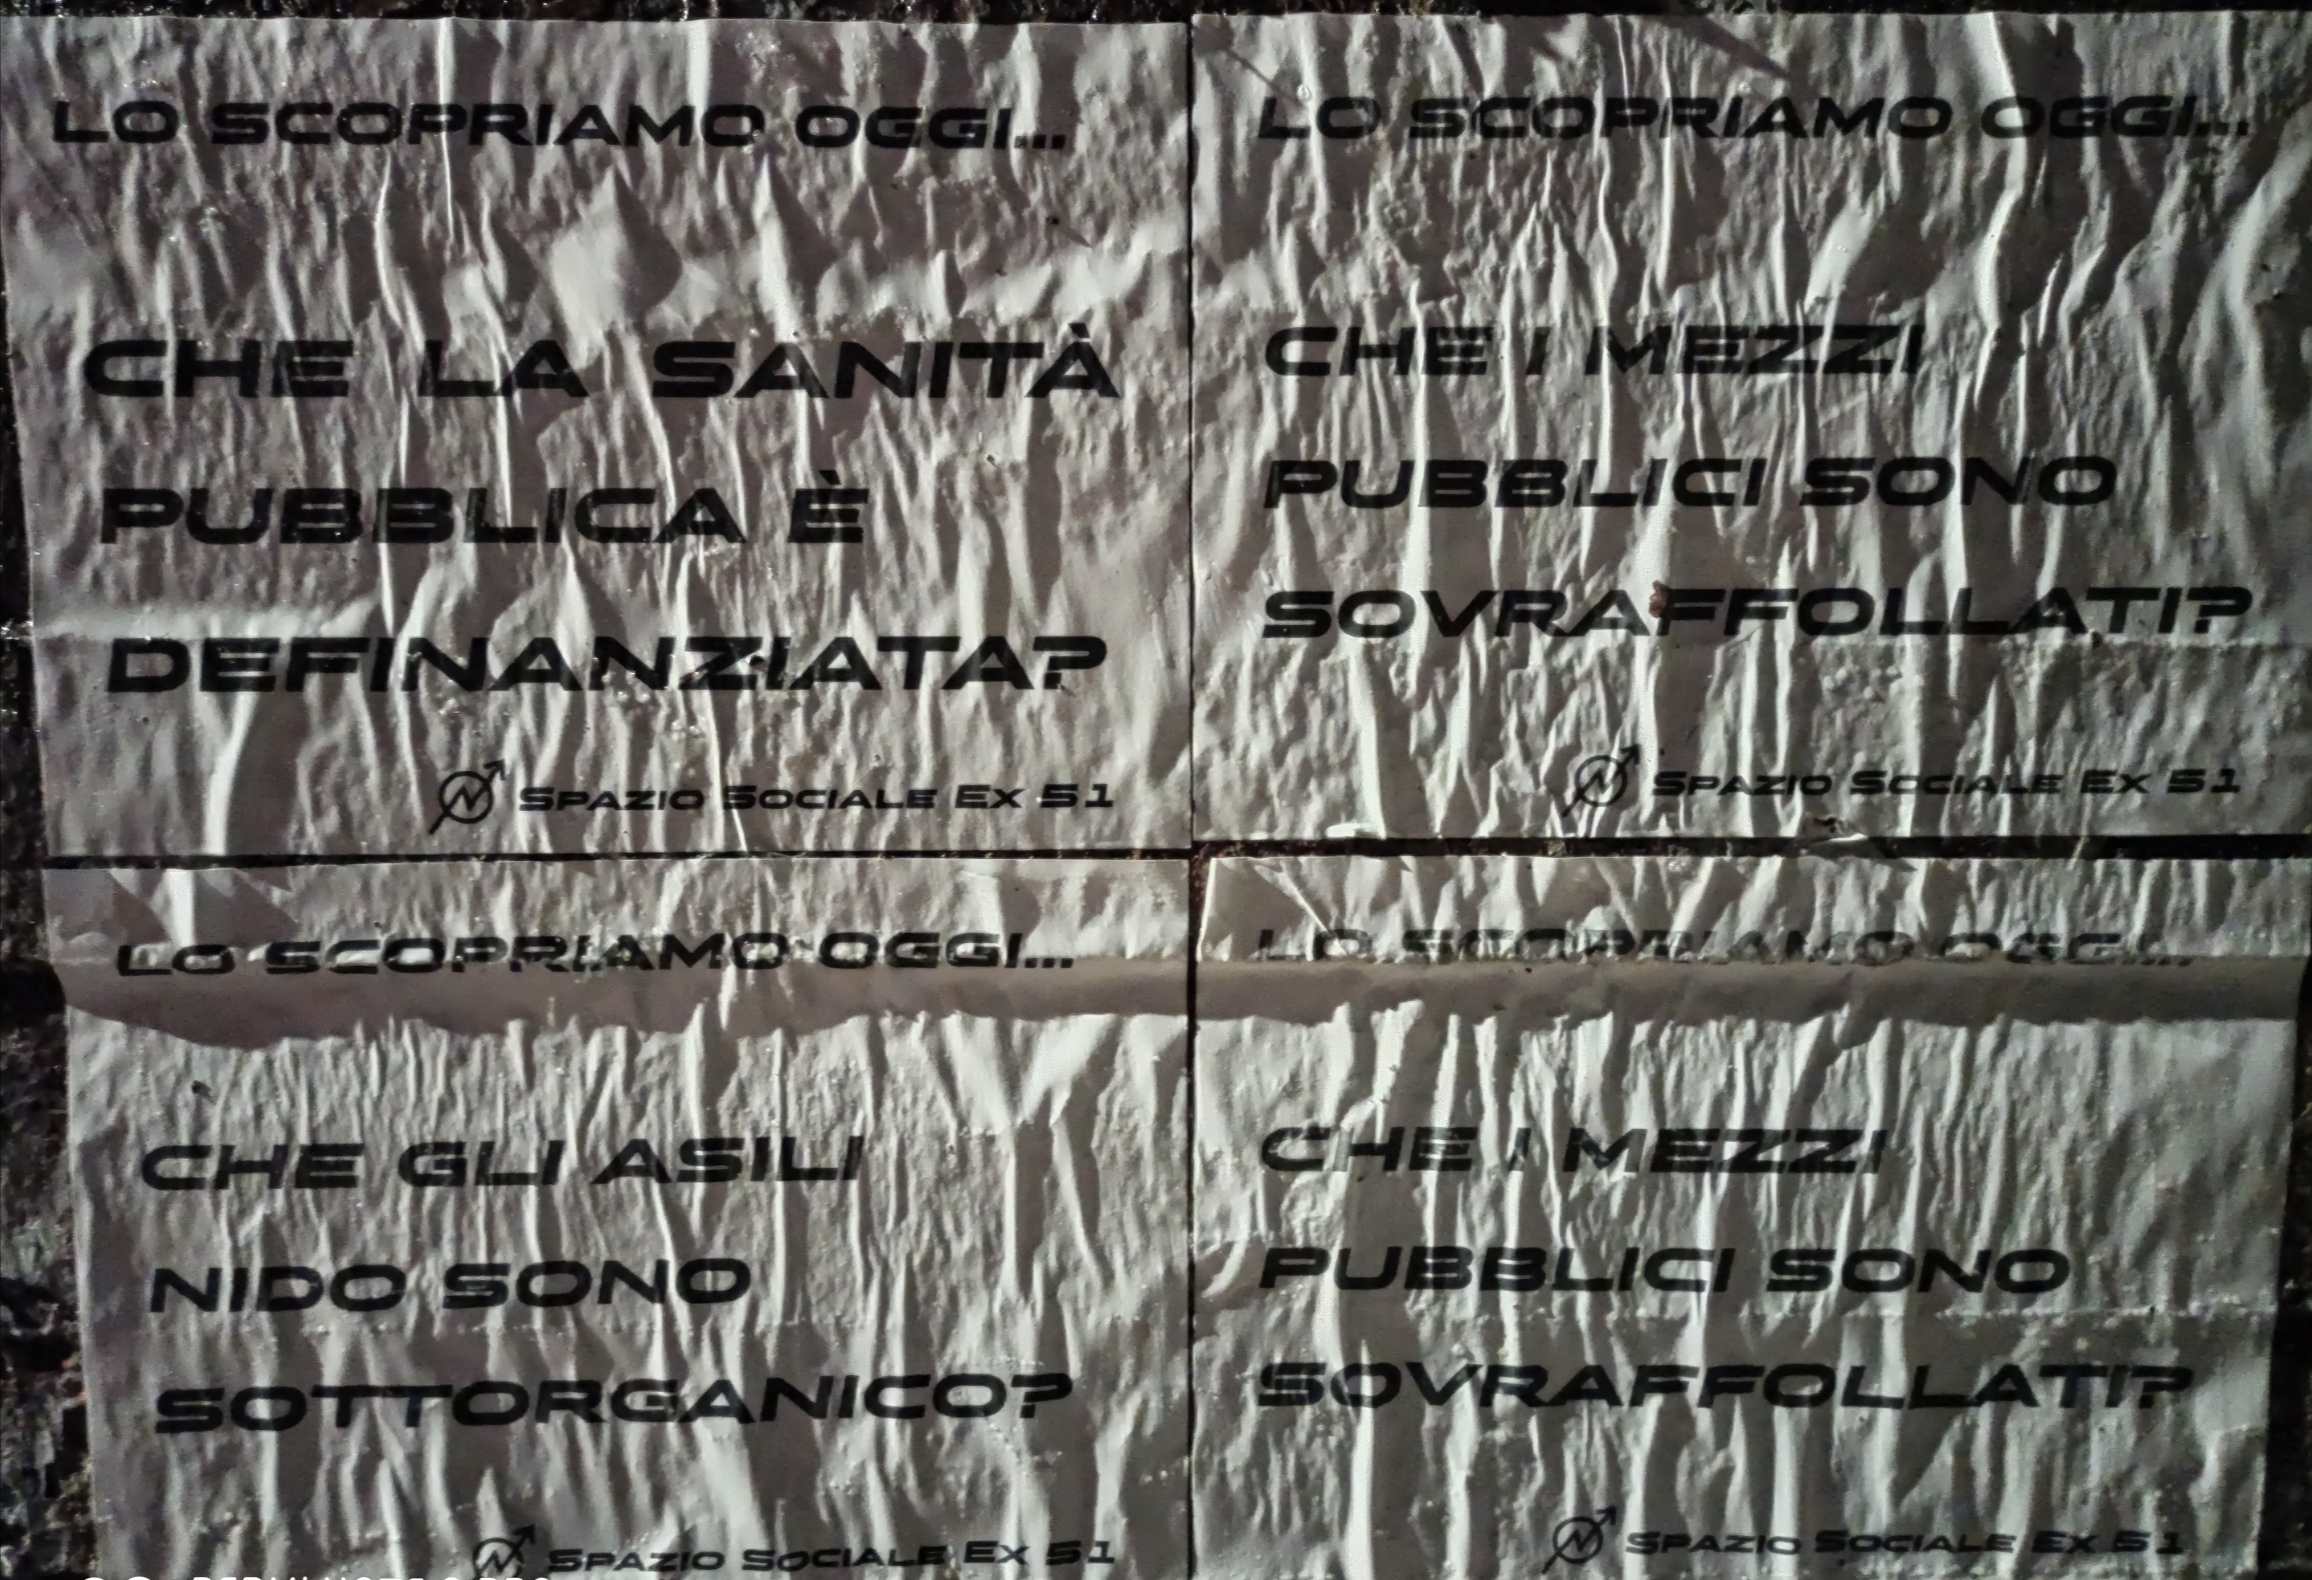 LO SCOPRIAMO OGGI...
CHE LA SANITÀ
PUBBLICA È
DEFINANZIATA?
SPAZIO SOCIALE EX 51
LO SCOPRIAMO OGGI...
CHE I MEZZI
PUBBLICI SONO
SOVRAFFOLLATI?
SPAZIO SOCIALE EX 51
LO SCOPRIAMO OGGI...
CHE GLI ASILI
NIDO SONO
SOTTORGANICO?
SPAZIO SOCIALE EX 51
LO SCOPRIAMO OGGI...
CHE I MEZZI
PUBBLICI SONO
SOVRAFFOLLATI?
SPAZIO SOCIALE EX 51